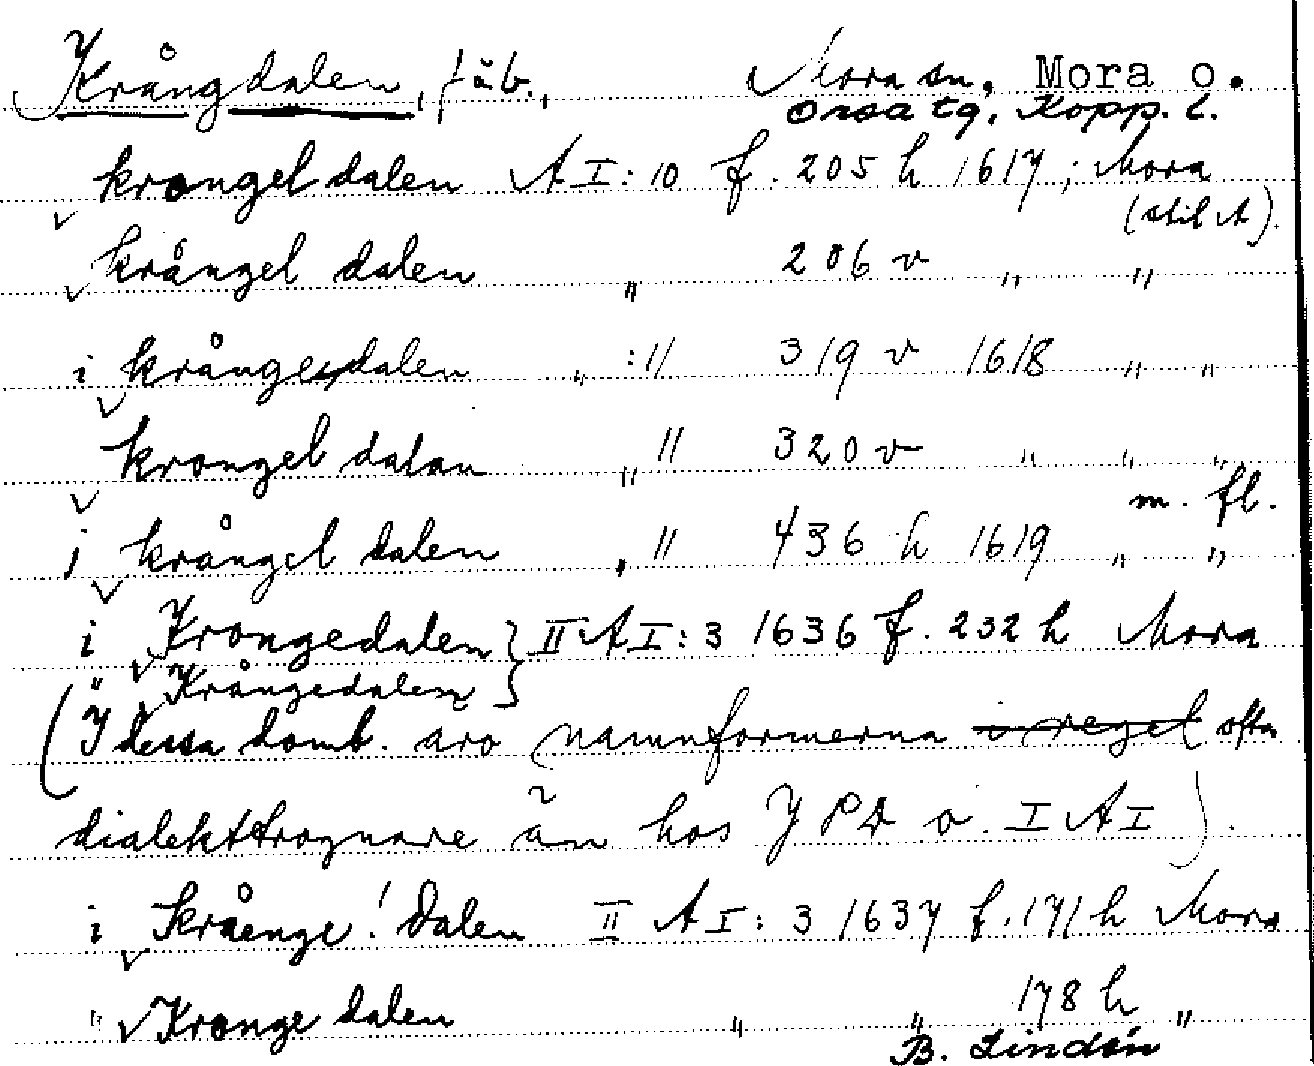 Krångdalen, fäb., Mora sn, Mora o.
Orsa tg, Kopp. l.
krongel dalen A I: 10 f. 205 h 1617; Mora
(stil A).
krångel dalen " 206 v " "
i krångesdalen " :11 319 v 1618 " "
krongel dalan " 11 320 v " " "
m. fl.
j krångel dalen " 11 436 h 1619 " "
i Krongedalen } II A I: 3 1636 f. 232 h Mora
" Krångedalen }
(I dessa domb. äro namnformerna i regel ofta
dialekttrognare än hos JPD o. I A I).
i Kråenge! dalen II A I: 3 1637 f. 171 h Mora
" Kronge dalen " " 178 h "
B. Lindén